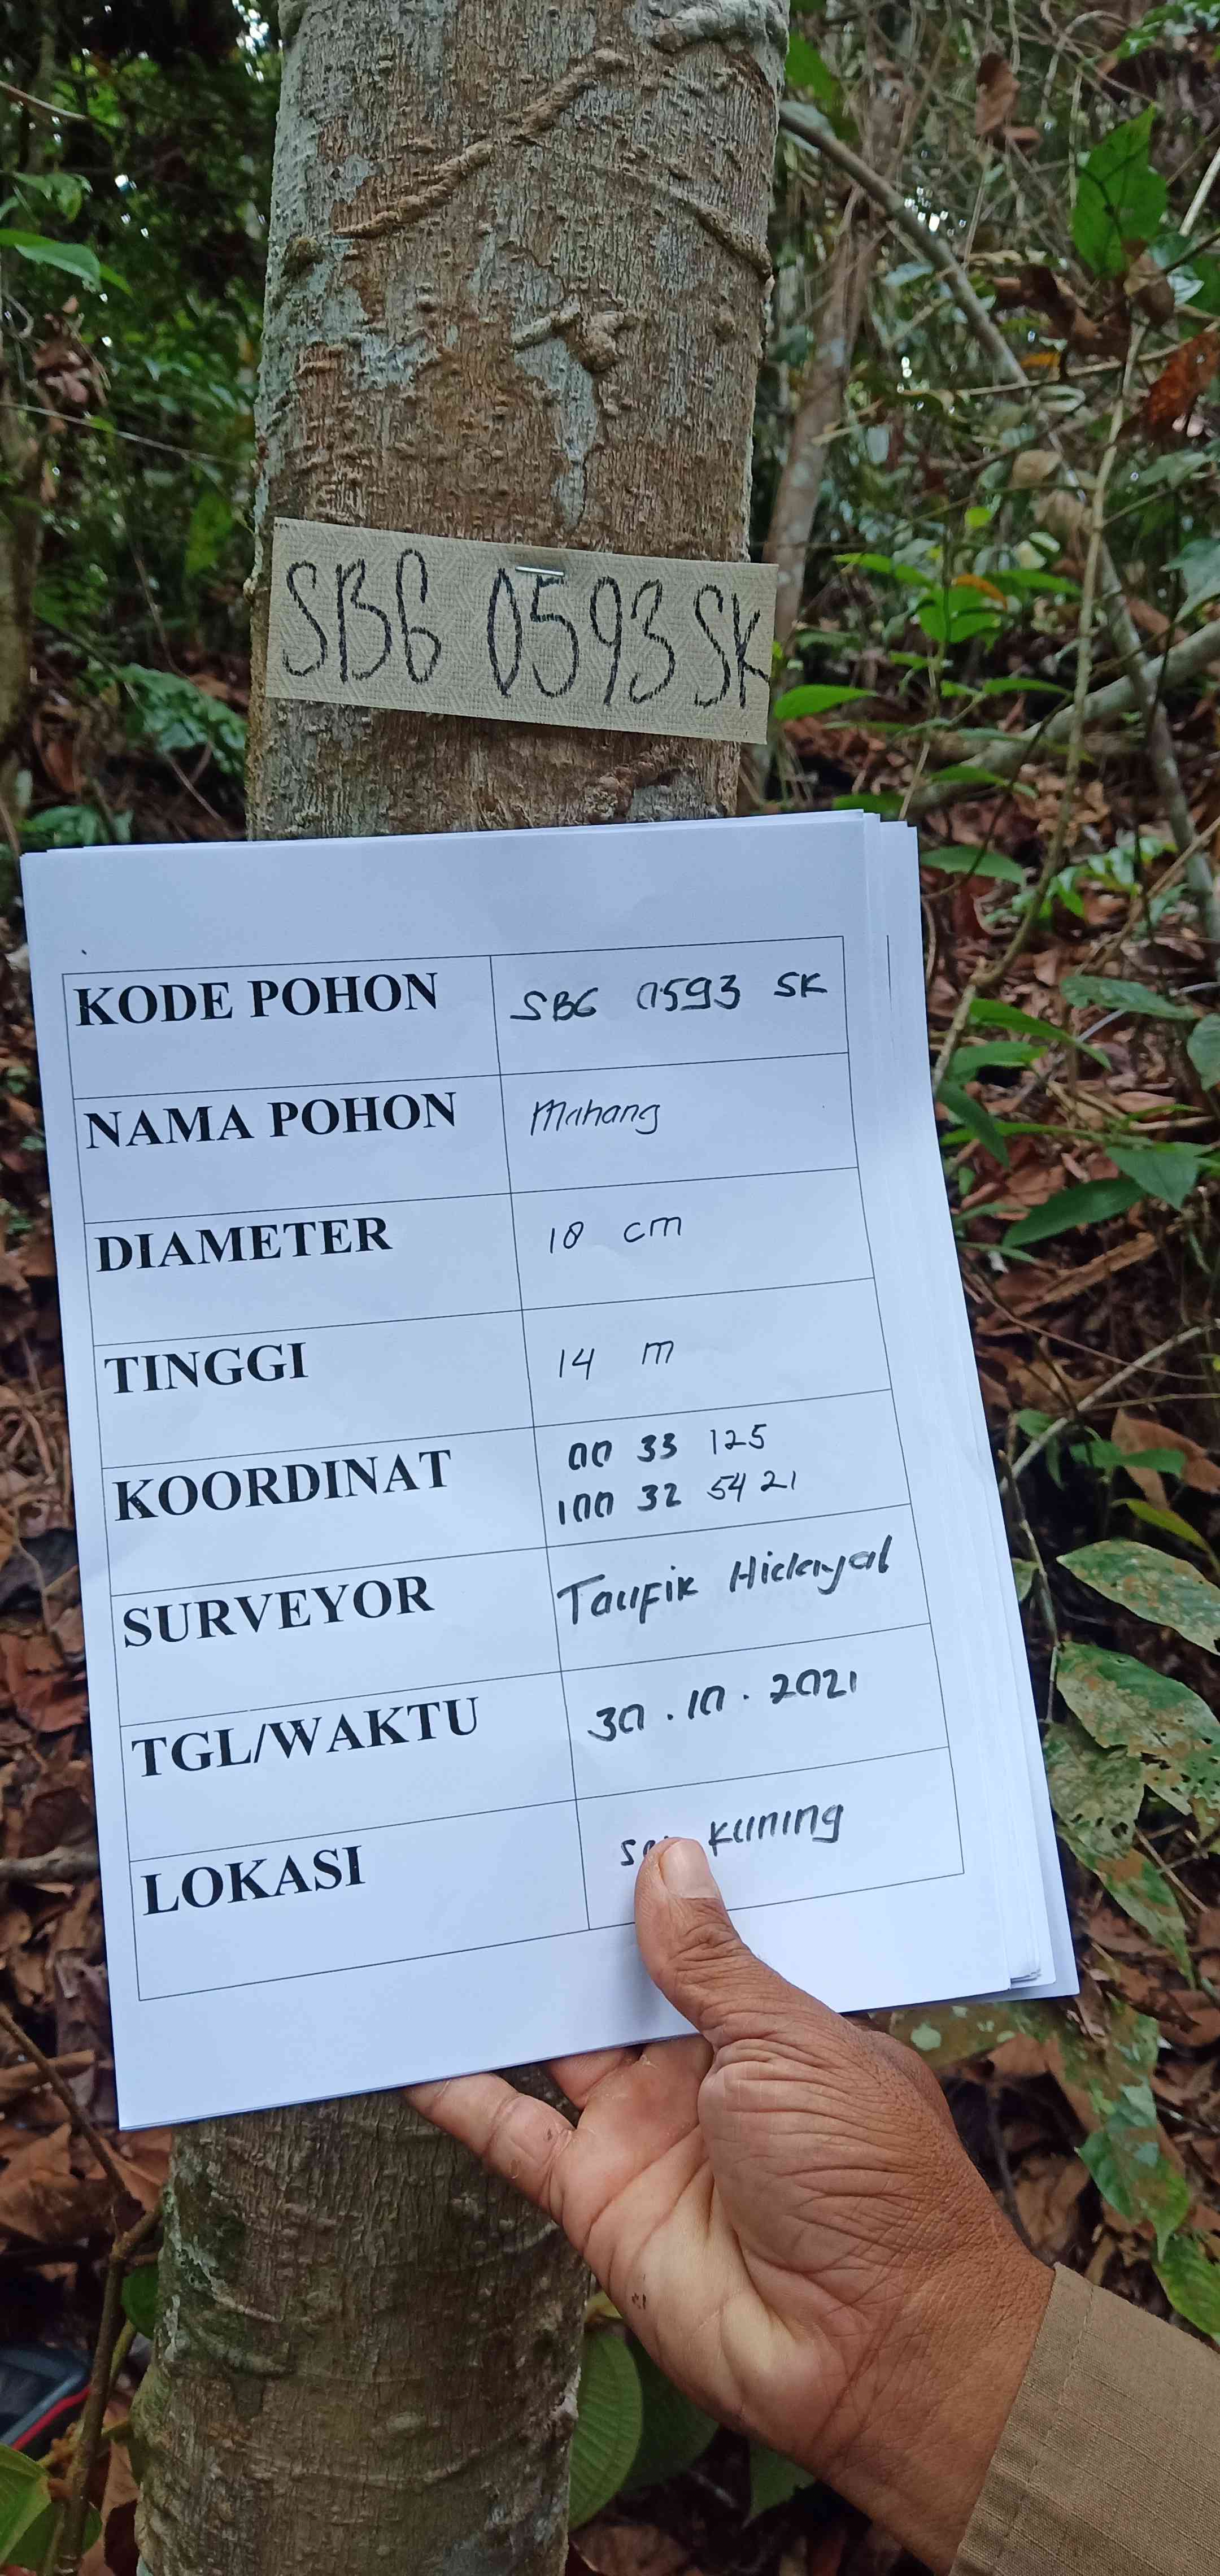 SBG 0593 SK
KODE POHON SBG 0593 SK
NAMA POHON Mahang
DIAMETER 18 cm
TINGGI 14 m
KOORDINAT 00 33 125
100 32 5421
SURVEYOR Taufik Hidayat
TGL/WAKTU 30.10.2021
LOKASI kuning